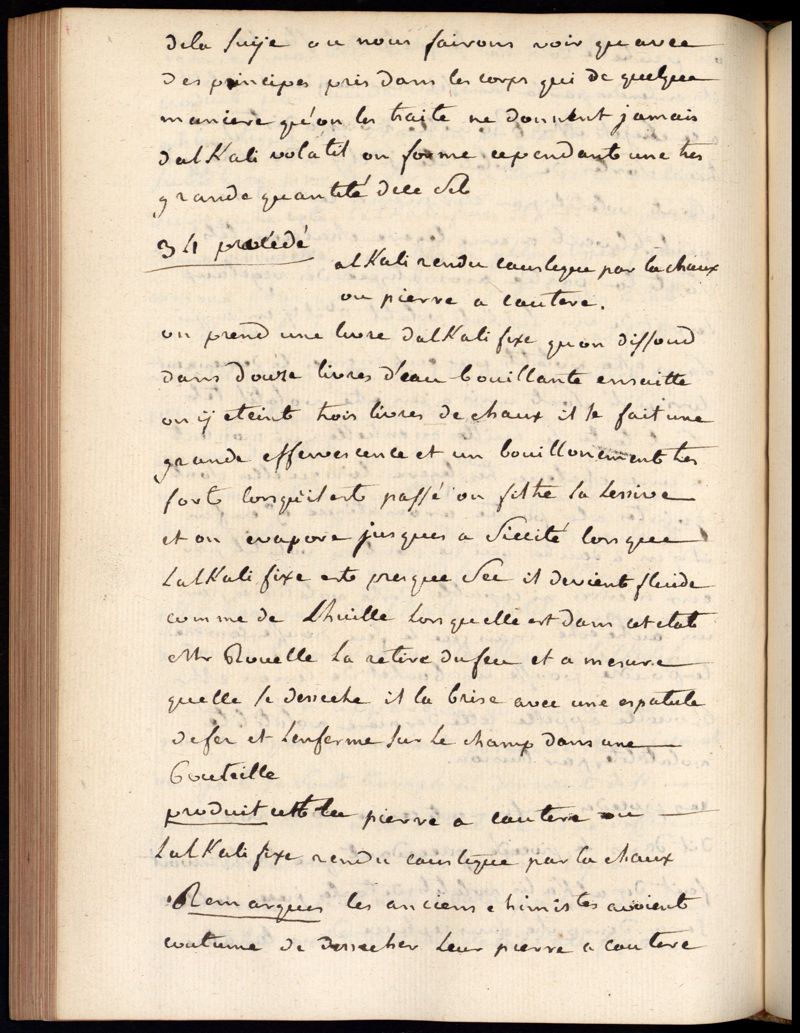 dela suije ou nous fairons voir qu avec
des principes pris dans les corps qui de quelque
maniere qu'on les traite ne donnent jamais
dalKali volatil on forme cependant une tres
grande quantité de ce Sel
34 procédé
alKali rendu caustique par la chaux
ou pierre a cautere.
on prend une livre dalKali fixe qu on dissoud
dans douze livres d'eau bouillante ensuitte
on ÿ eteint trois livres de chaux il se fait une
grande effervescence et un bouillonement tres
fort lorsquil est passé on filtre la Lessive
et on evapore jusques a Siccité lorsque
LalKali fixe est presque Sec il devient fluide
comme de Lhuille Lorsquelle est dans cet etat
Mr Rouelle La retire du feu et a mesure
quelle se desseche il la brise avec une espatule
de fer et Lenferme sur le champ dans une
bouteille
produit cest la pierre a cautere ou
LalKali fixe rendu caustique par la chaux
Remarques les anciens chimistes avoient
coutume de dessecher leur pierre a cautere